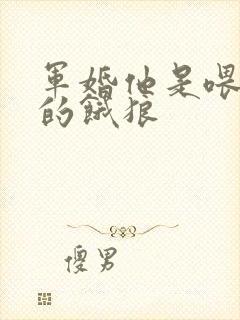 軍婚他是喂
的餓狼
傻男